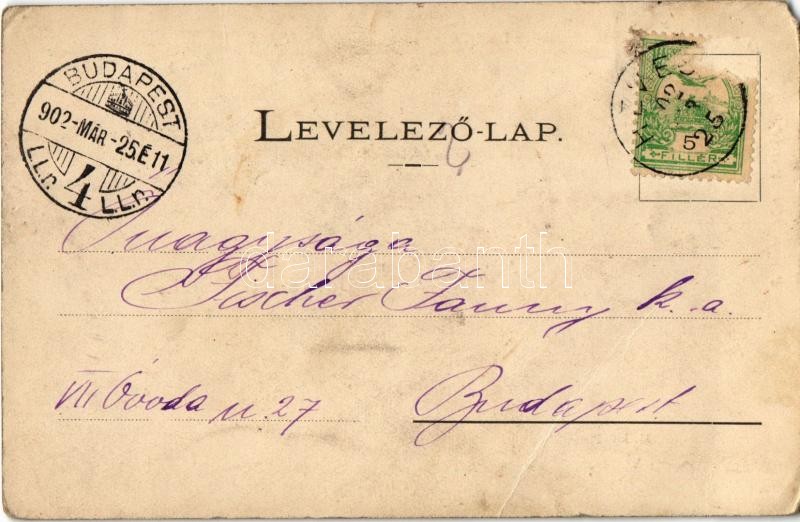 BUDAPEST
902-MÁR-25.É11
4
I.I.r. I.I.r.
LEVELEZŐ-LAP.
HEVES
902
25
5
FILLÉR
Őnagysága
Fischer Fanny k. a.
VII Óvoda u 27
Budapest
darabanth